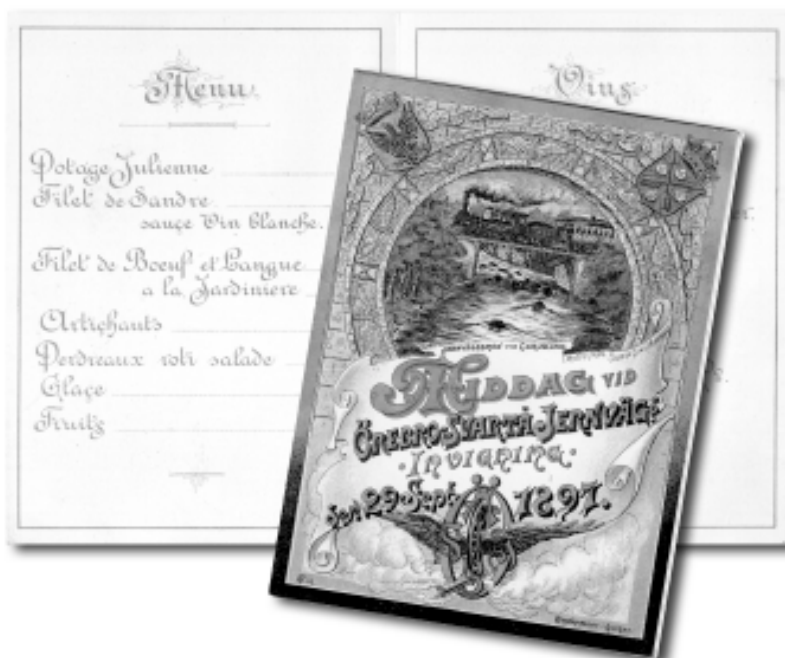 Menu
Potage Julienne
Filet de Sandre
sauçe Vin blanche.
Filet de Boeuf et Langue
a la Jardiniere
Artichauts
Perdreaux roti salade
Glaçe
Fruits
Vins
Middag vid
Örebro-Svartå Jernvägs
Invigning.
den 29 Sept. 1897.